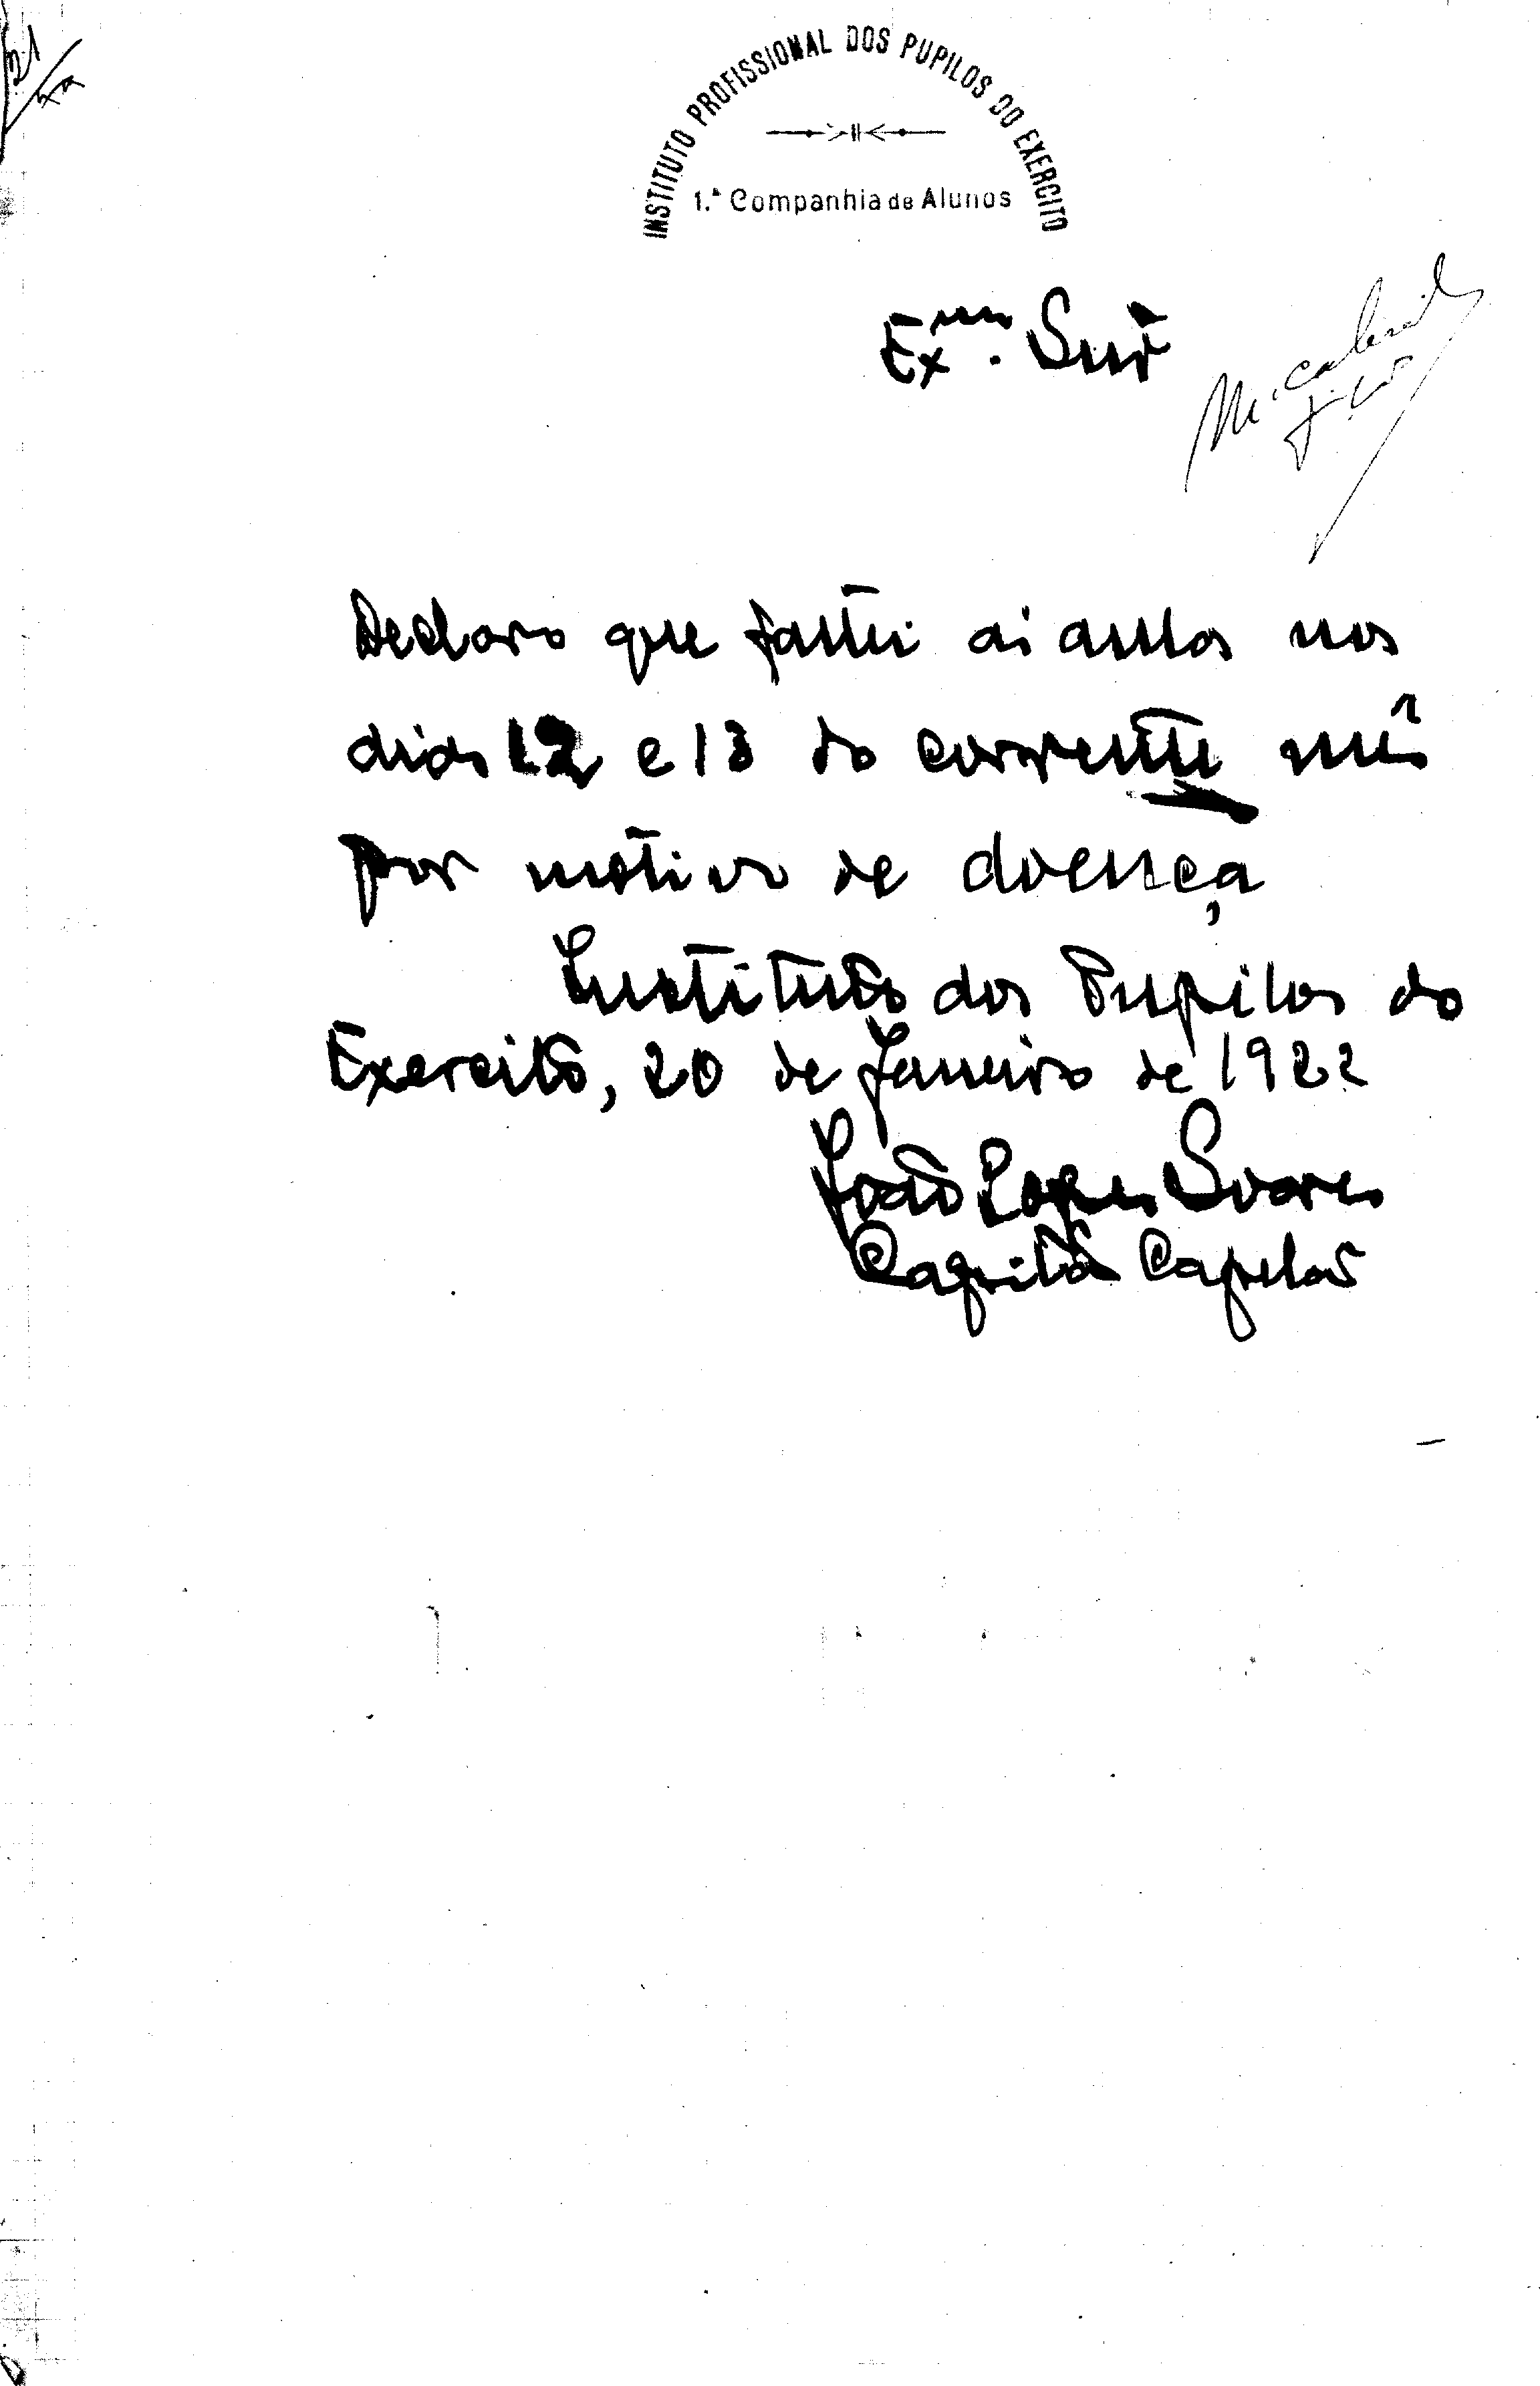 INSTITUTO PROFISSIONAL DOS PUPILOS DO EXERCITO
1.ª Companhia de Alunos
Exmo. Snr
Declaro que faltei ás aulas nos
dias 12 e 13 do corrente mês
por motivo de doença
Instituto dos Pupilos do
Exercito, 20 de Janeiro de 1922
João Lopes Soares
Capitão Capelão